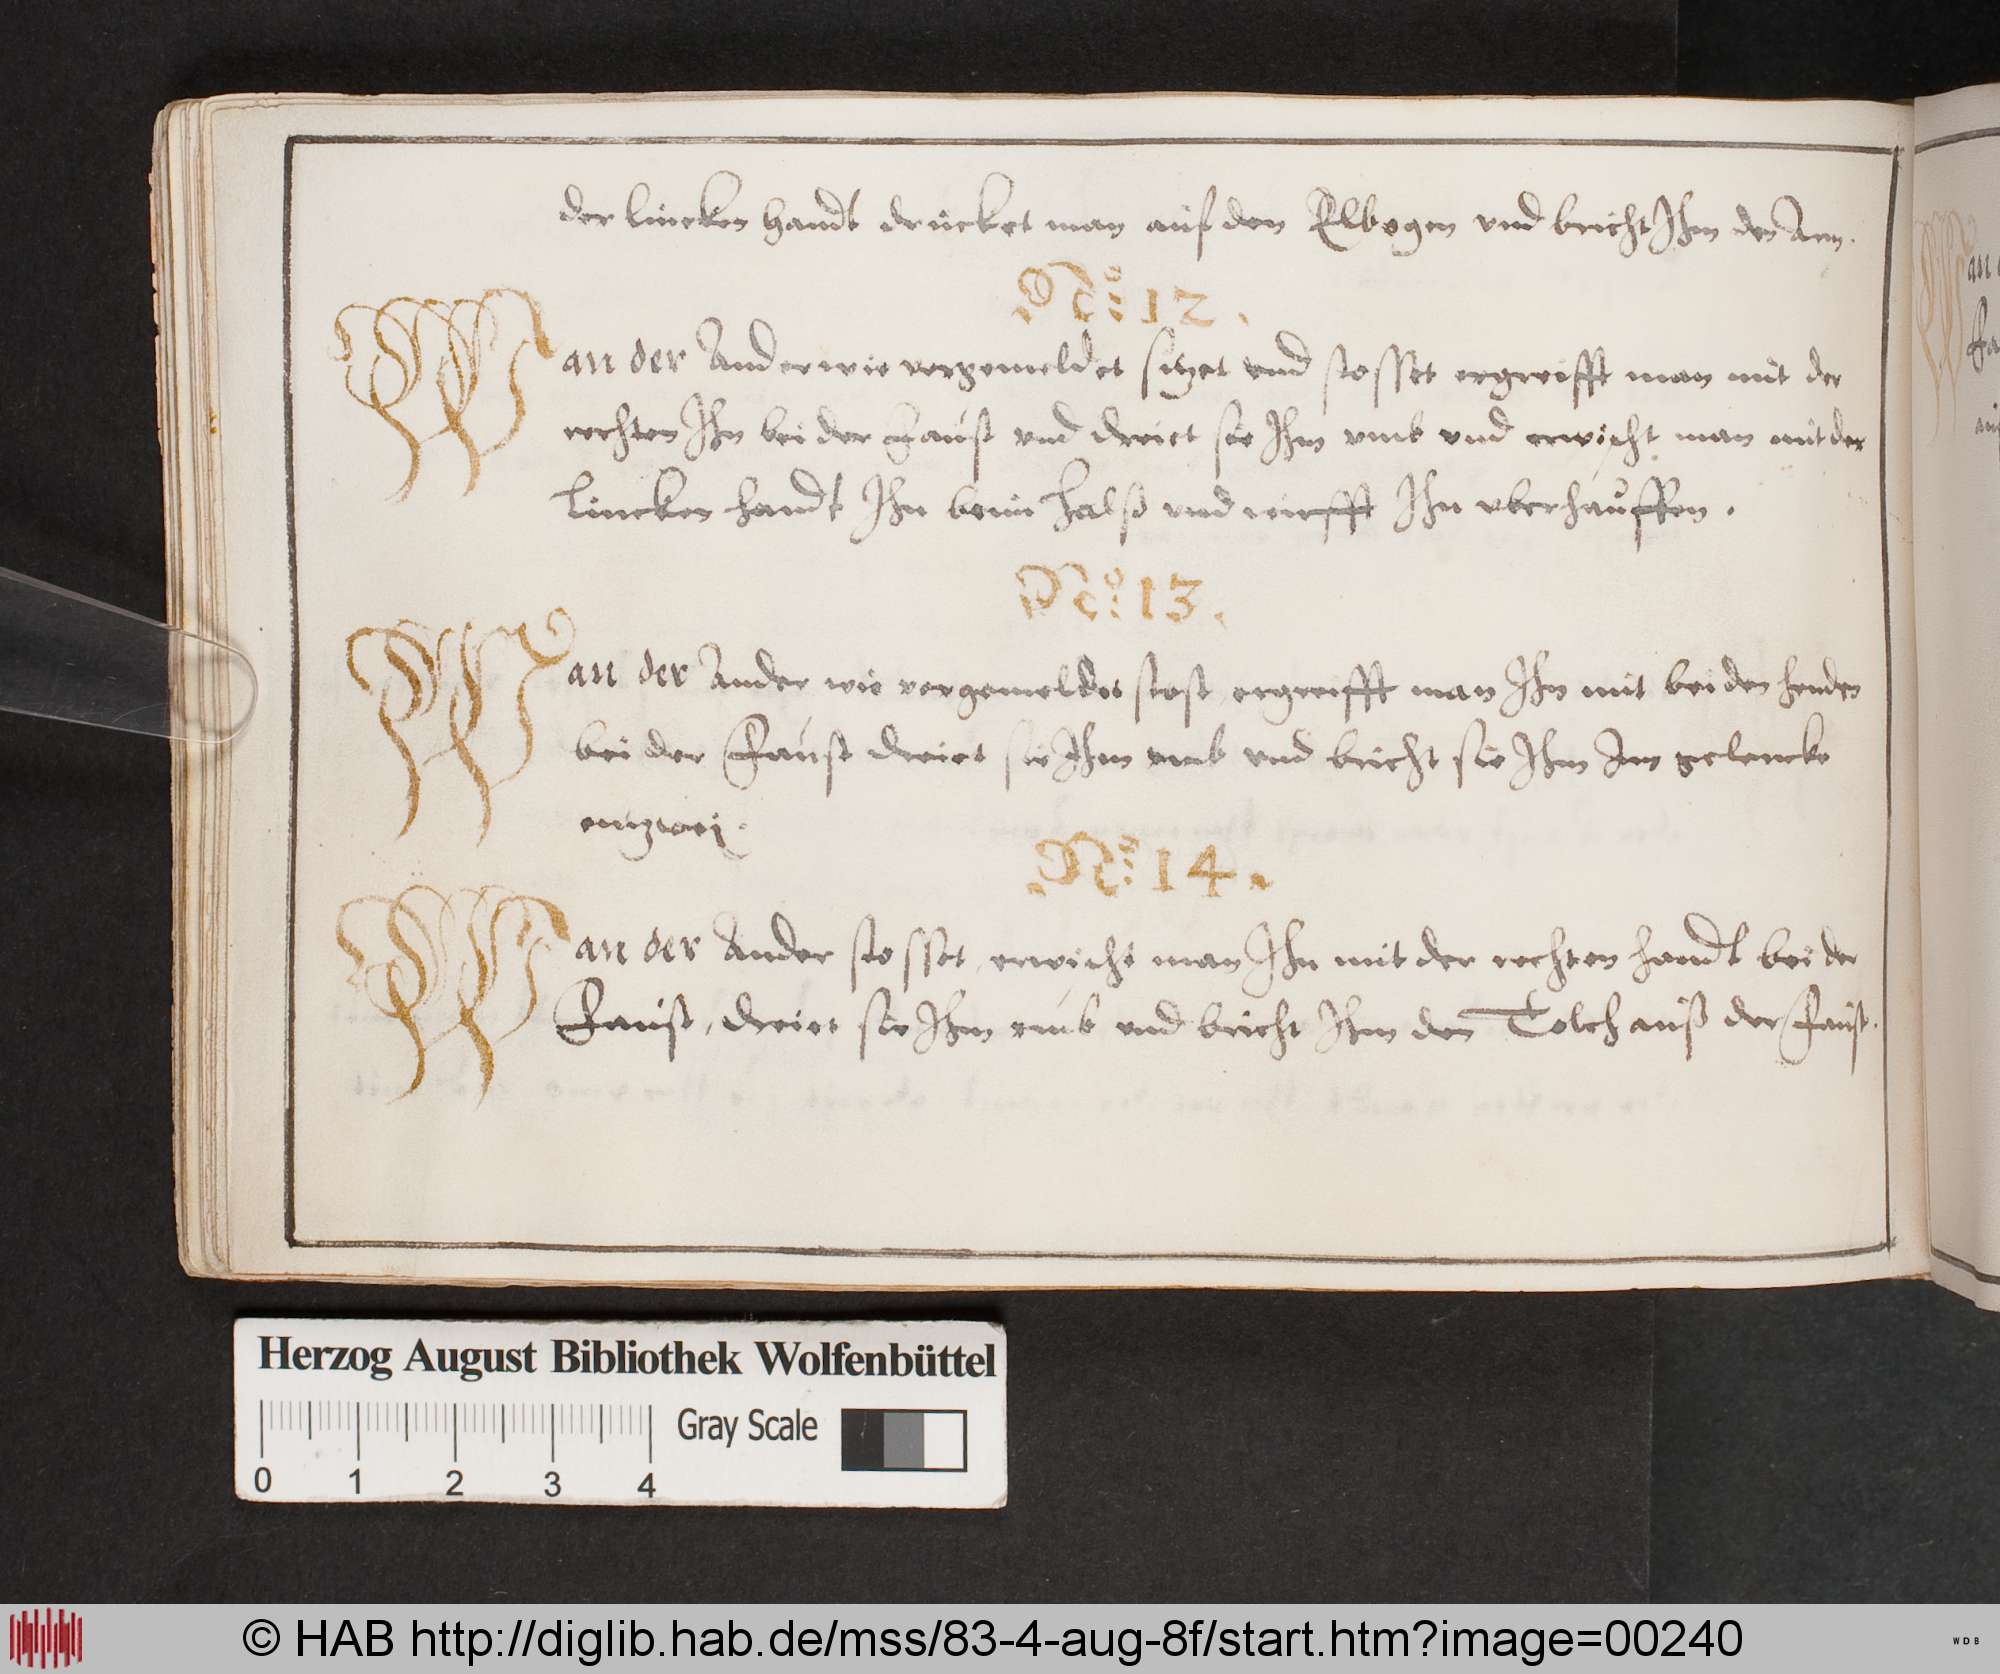 der lincken handt drücket man auf den Elbogen und bricht Ihm den Arm.
No: 12.
Wan der Ander wie vorgemeldet sitzet und stosset ergreifft man mit der
rechten Ihn bei der Faust und dreiet sie Ihm umb und erwischt man mit der
lincken handt Ihn beim halß und wirfft Ihn uberhauffen.
No: 13.
Wan der Ander wie vorgemeldet stost ergreifft man Ihn mit beiden henden
bei der Faust dreiet sie Ihm umb und bricht sie Ihm Im gelencke
entzwei.
No: 14.
Wan der Ander stosset, erwischt man Ihn mit der rechten handt bei der
Faust, dreiet sie Ihm umb und bricht Ihm den Tolch auß der Faust.
Herzog August Bibliothek Wolfenbüttel
Gray Scale
0 1 2 3 4
© HAB http://diglib.hab.de/mss/83-4-aug-8f/start.htm?image=00240
WDB